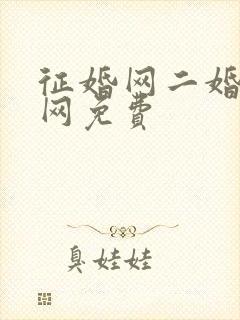 征婚网二婚
网免费
臭娃娃